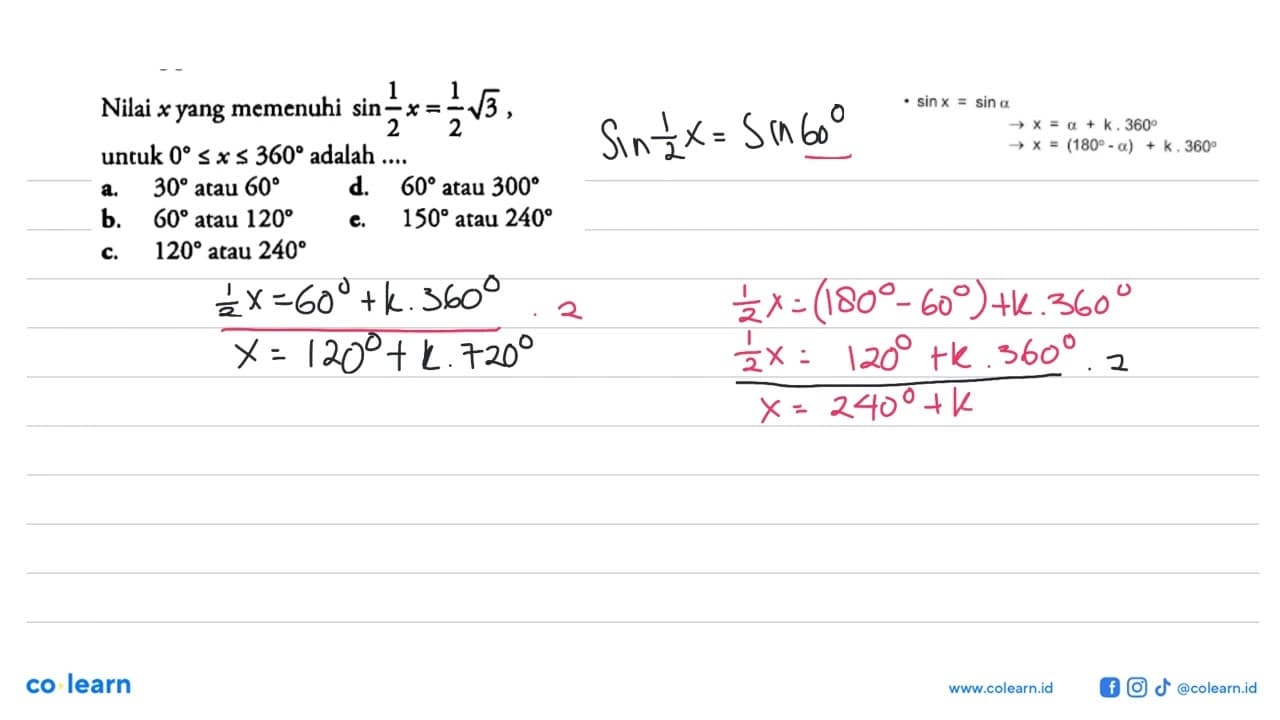 Nilai x yang memenuhi sin 1/2 x = 1/2 √3 ,
untuk 0° ≤ x ≤ 360° adalah ....
a. 30° atau 60° d. 60° atau 300°
b. 60° atau 120° e. 150° atau 240°
c. 120° atau 240°
Sin 1/2 x = Sin 60°
• sin x = sin α
→ x = α + k . 360°
→ x = (180° - α) + k . 360°
1/2 x = 60° + k . 360° . 2
x = 120° + k . 720°
1/2 x = (180° - 60°) + k . 360°
1/2 x = 120° + k . 360° . 2
x = 240° + k
co learn
www.colearn.id
@colearn.id